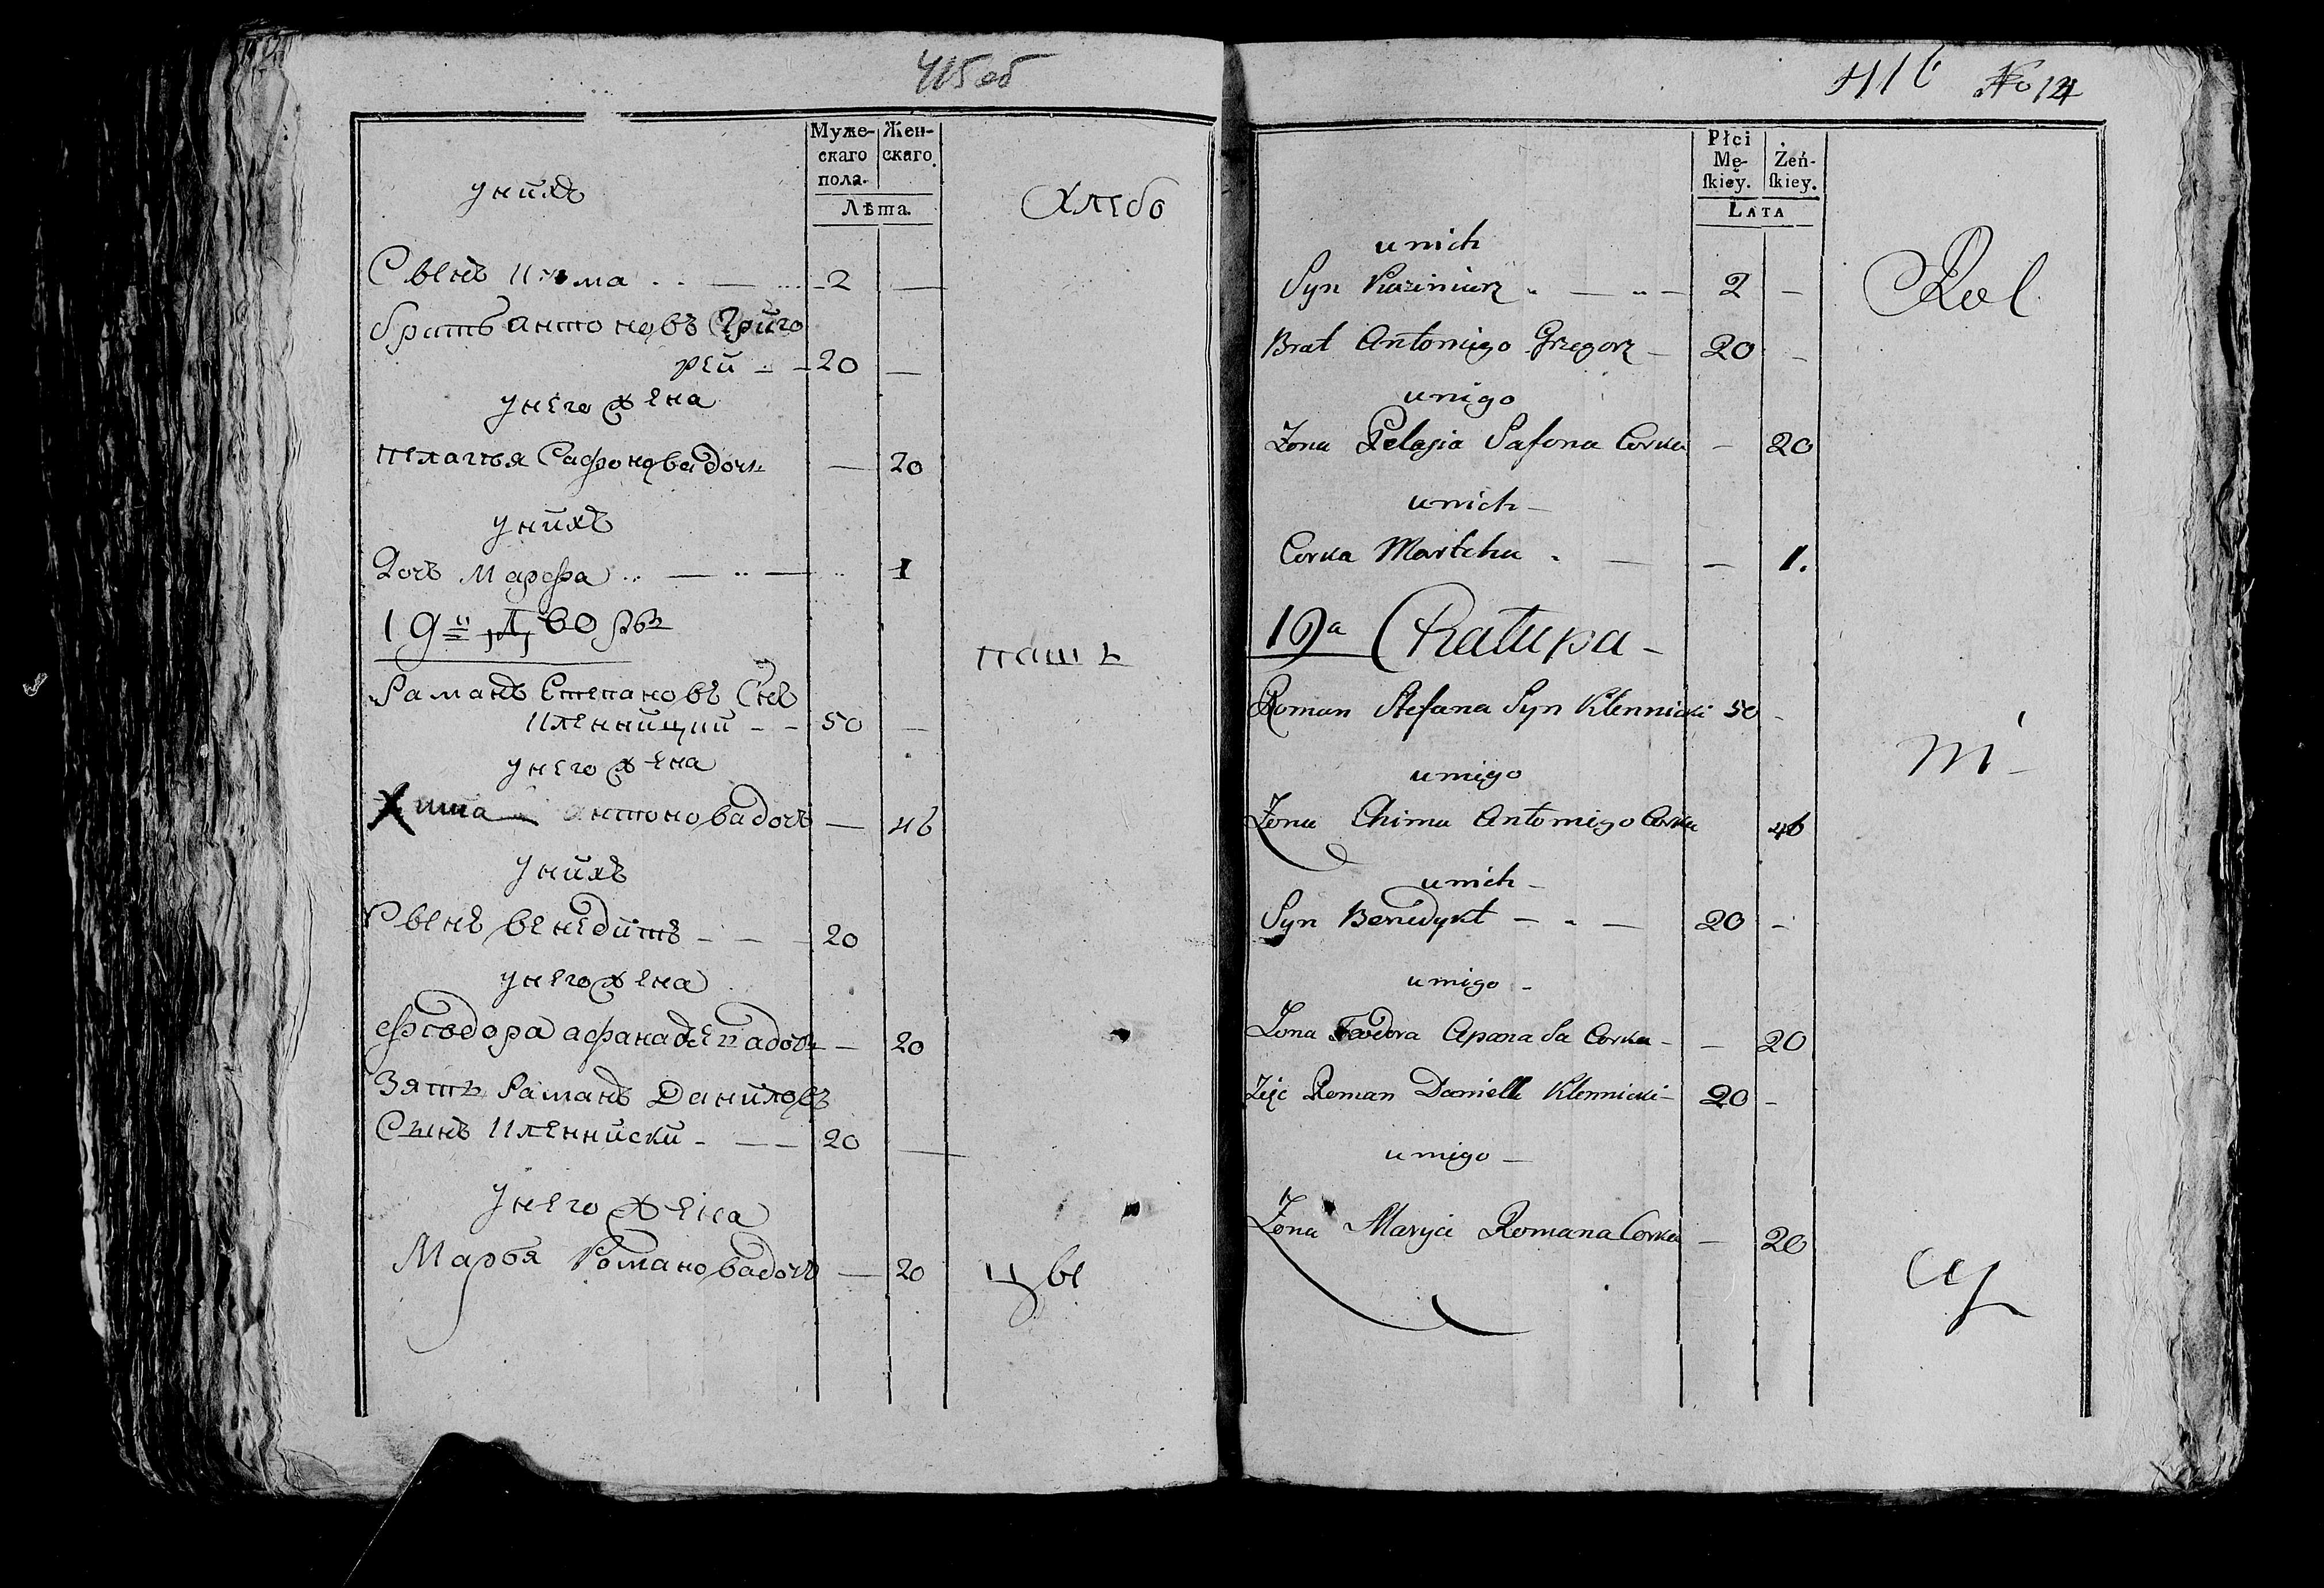 415 об
Муже-
скаго
пола.
Жен-
скаго.
Лѣта.
унихъ
Хлебо
Сынъ
2
братъ антоновъ Григо
рей 20
унего жена
пелагѣя Сафонова дочь — 20
унихъ
Дочь Марфа — 1
19й Дворъ
пашъ
Раманъ Степановъ Снъ
Кленницкий 50
унего жена
Хима антонова дочь — 46
унихъ
Сынъ венедитъ — 20
унего жена
Феодора дочь — 20
Зять Раманъ Даниловъ
Сынъ Кленниски — 20
унего жена
Марья Романова дочь — 20
цы
416 No 14
Płci
Mę-
skiey.
Żeń-
skiey.
LATA
unich
Syn Kazimierz — 2 —
Rol
Brat Antoniego Grzegorz — 20 —
unigo
Zona Pelagia Safona Corka — 20
unich —
Corka Martcha — 1.
19a Chatupa —
Roman Stefana Syn Klennicki 50 —
ni —
unigo
Zona Chima Antoniego Corka 46
unich —
Syn Benedykt — 20 —
unigo —
Zona Teodora Apana Sa Corka — 20
Zięc Roman Daniella Klennicki — 20 —
unigo —
Zona Maryia Romana Corka — 20
cy